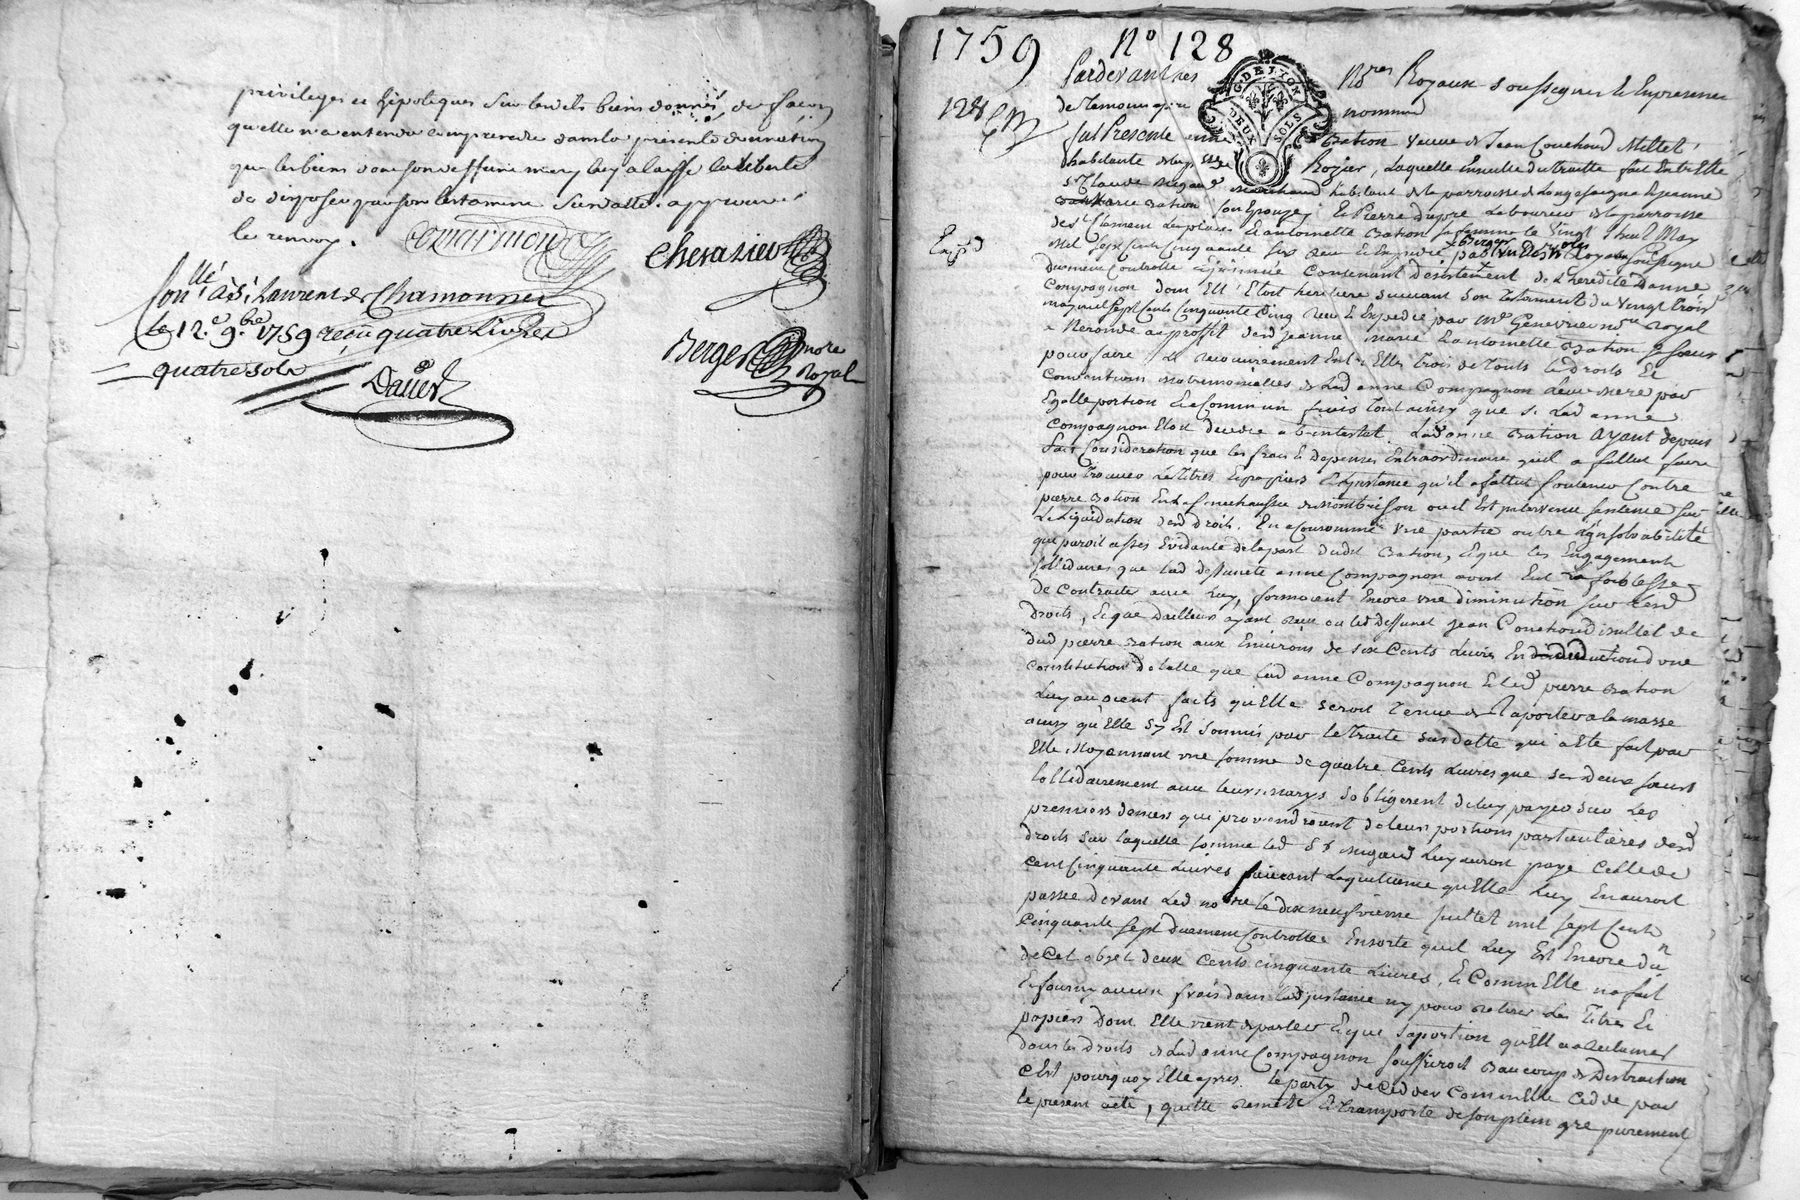 privileges et hipoteques sur lesdits biens donnés, de façon
quelle n'a entendu comprendre dans la presente donnation
que les biens dont son deffunt mary luy a laissé la liberté
de disposer par son testament susdatté. approuvé
le renvoy.
Chevazieu
Conllé à St Laurent de Chamousset
Le 12.e 9.bre 1759 reçu quatre livres
quatre sols
Berger no.re Royal
1759 No 128
128
Pardevant les No.res Royaux soussignés Et En presence
de Temoins nommé
fut Presente Bation veuve de Jean Couchoud Millet
habitante de Rozier, Laquelle Ensuite du traitté fait Entre Elle
Sr Claude Migaud Marchand habitant de la parroisse de Longessaigne Et Jeanne
Marie Bation son Epouse, Et Pierre dupré Laboureur de la parroisse
de St Clement Les places Et antoinette Bation sa femme le Vingt huit May
Mil Sept Cents Cinquante Six Receu Et Expedié par Berger L'un Des No.res Royaux Soussigné
Duement Controllé Contenant desistement de L'heredité D'anne
Compagnon dont Elle Etoit heritiere suivant Son Testament du Vingt trois
may mil sept Cents Cinquante Cinq receu Et Expedié par Me Genevrier no.re royal
a Neronde au proffit desd Jeanne Marie Et antoinette Bation Ses soeurs
pour faire Le recouvrement Entre Elles trois de touts les Droits Et
Conventions Matrimonielles de Lad anne Compagnon Leur mere par
Egalle portion Et a Commun frais tout ainsy que Si Lad anne
Compagnon Etoit decedée ab intestat. Lad anne Bation ayant depuis
fait Consideration que les frais Et Depenses Extraordinaires qu'il a fallut faire
pour trouver Les Titres Et papiers Et L'instance qu'il a fallut soutenir Contre
pierre Bation En La Senechaussée de Montbrison ou il Est intervenu sentence sur
La Liquidation desd droits. En a Consommé Une partie outre L'insolvabilité
qui paroit assés Evidante de la part dudit Bation, Et que les Engagements
sollidaires que Lad deffunte anne Compagnon avoit Eut la foiblesse
de Contracter avec Luy, formoient Encore une diminution sur Lesd
droits, Et que D'ailleurs ayant Receu ou led Deffunct Jean Couchoud Millet de
dud pierre Bation aux Environs de six Cents Livres En deduction d'une
constitution dotalle que Lad anne Compagnon Et led pierre Bation
Luy avoient faits qu'Elle seroit Tenue de raporter a la masse
ainsy qu'Elle s'y Est soumis par le Traité susdatté qui a Eté fait par
Elle Moyennant une somme de quatre Cents Livres que ses deux soeurs
sollidairement avec leurs marys s'obligerent de luy payer sur Les
premiers deniers qui proviendroient de leurs portions particulieres desd
droits sur laquelle somme Led Sr Migaud Luy auroit payé Celle de
cent Cinquante Livres suivant La quittance qu'Elle Luy En auroit
passée devant Led no.re le dix neufvieme juillet mil sept Cents
Cinquante sept duement Controllée Ensorte qu'il Luy Est Encore du
de Cet objet deux Cents cinquante Livres, Et Comm'Elle n'a fait
Et fourny aucun frais dans lad jnstance ny pour retirer Les Titres Et
papiers Dont Elle vient de parler Et que sa portion qu'Ell'a a reclamer
dans les droits de Lad anne Compagnon souffriroit Beaucoup de Distraction
c'Est pourquoy Elle a pris Le party de Ceder Comm'Elle Cedde par
le present acte, quitte remet Et transporte de son plein gré purement